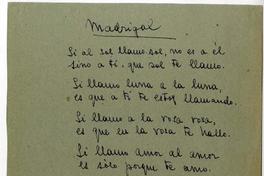 Madrigal
Si al sol llamo sol, no es a él
sino a ti, que sol te llamo.
Si llamo luna a la luna,
es que a ti te estoy llamando.
Si llamo a la rosa rosa,
es que en la rosa te hallo.
Si llamo amor al amor
es sólo porque te amo.